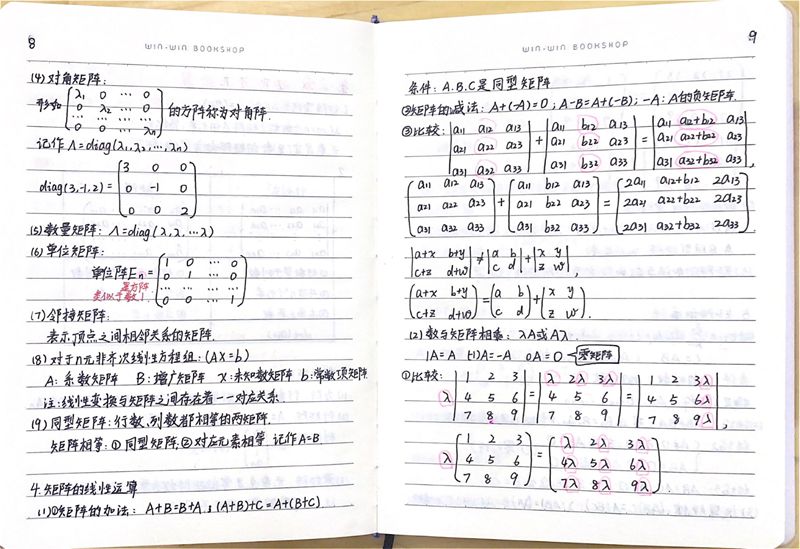 8
WIN-WIN BOOKSHOP
(4) 对角矩阵:
形如 (λ₁ 0 ⋯ 0
0 λ₂ ⋯ 0
⋯ ⋯ ⋯ ⋯
0 0 ⋯ λn) 的方阵称为对角阵.
记作 Λ=diag(λ₁,λ₂,⋯,λn)
diag(3,-1,2)= (3 0 0
0 -1 0
0 0 2)
(5) 数量矩阵: Λ=diag(λ,λ,⋯λ)
(6) 单位矩阵:
单位阵En= (1 0 ⋯ 0
0 1 ⋯ 0
⋯ ⋯ ⋯ ⋯
0 0 ⋯ 1)
是方阵
类似于数1.
(7) 邻接矩阵:
表示顶点之间相邻关系的矩阵.
(8) 对于n元非齐次线性方程组: (AX=b)
A: 系数矩阵 B: 增广矩阵 x:未知数矩阵 b:常数项矩阵
注:线性变换与矩阵之间存在着一一对应关系.
(9) 同型矩阵:行数,列数都相等的两矩阵.
矩阵相等:①同型矩阵,②对应元素相等. 记作A=B
4.矩阵的线性运算
(1)①矩阵的加法: A+B=B+A ; (A+B)+C=A+(B+C)
9
WIN-WIN BOOKSHOP
条件: A.B.C是同型矩阵
②矩阵的减法: A+(-A)=0 ; A-B=A+(-B) ; -A: A的负矩阵.
③比较: |a11 a12 a13| + |a11 b12 a13| = |a11 a12+b12 a13|
|a21 a22 a23| |a21 b22 a23| |a21 a22+b22 a23|
|a31 a32 a33| |a31 b32 a33| |a31 a32+b32 a33|,
(a11 a12 a13) + (a11 b12 a13) = (2a11 a12+b12 2a13)
(a21 a22 a23) (a21 b22 a23) (2a21 a22+b22 2a23)
(a31 a32 a33) (a31 b32 a33) (2a31 a32+b32 2a33).
|a+x b+y| ≠ |a b| + |x y|
|c+z d+w| |c d| |z w|,
(a+x b+y) = (a b) + (x y)
(c+z d+w) (c d) (z w).
(2) 数与矩阵相乘: λA或Aλ
1A=A (-1)A=-A 0A=O 零矩阵
①比较: λ |1 2 3| = |λ 2λ 3λ| = |1 2 3λ|
|4 5 6| |4 5 6| |4 5 6λ|
|7 8 9| |7 8 9| |7 8 9λ|,
λ (1 2 3) = (λ 2λ 3λ)
(4 5 6) (4λ 5λ 6λ)
(7 8 9) (7λ 8λ 9λ)